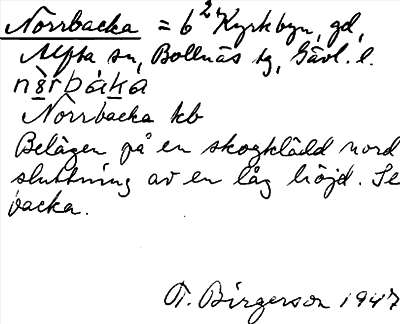 Norrbacka = b²⁴ Kyrkbyn, gd,
Alfta sn, Bollnäs tg, Gävl. l.
nòrbáka
Norrbacka kb
Belägen på en skogklädd nord
sluttning av en låg höjd. Se
backa.
T. Birgerson 1947